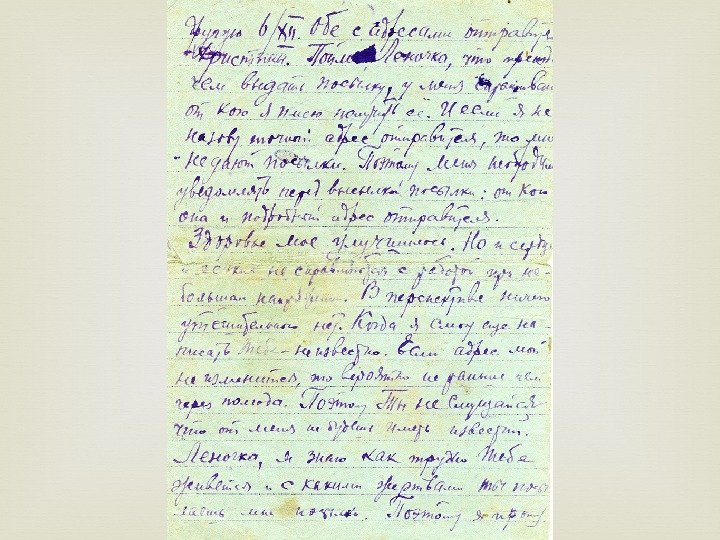 другую 6/XII. Обе с адресами отправите
Христины. Пойми Леночка, что прежд
чем выдать посылку, у меня спрашиваю
от кого я имею получить её. И если я не
назову точный адрес отправителя, то мне
не дают посылки. Поэтому меня необходим
уведомлять перед высылкой посылки: от кого
она и подробный адрес отправителя.
Здоровье мое улучшилось. Но и сердце
и легкие не справляются с работой при не-
большом напряжении. В перспективе ничего
утешительного нет. Когда я смогу еще на-
писать тебе - неизвестно. Если адрес мой
не изменится, то вероятно не раньше чем
через полгода. Поэтому Ты не смущайся
что от меня не будешь иметь известий.
Леночка, я знаю как трудно тебе
живется и с какими жертвами ты посы
лаешь мне посылки. Поэтому я прошу